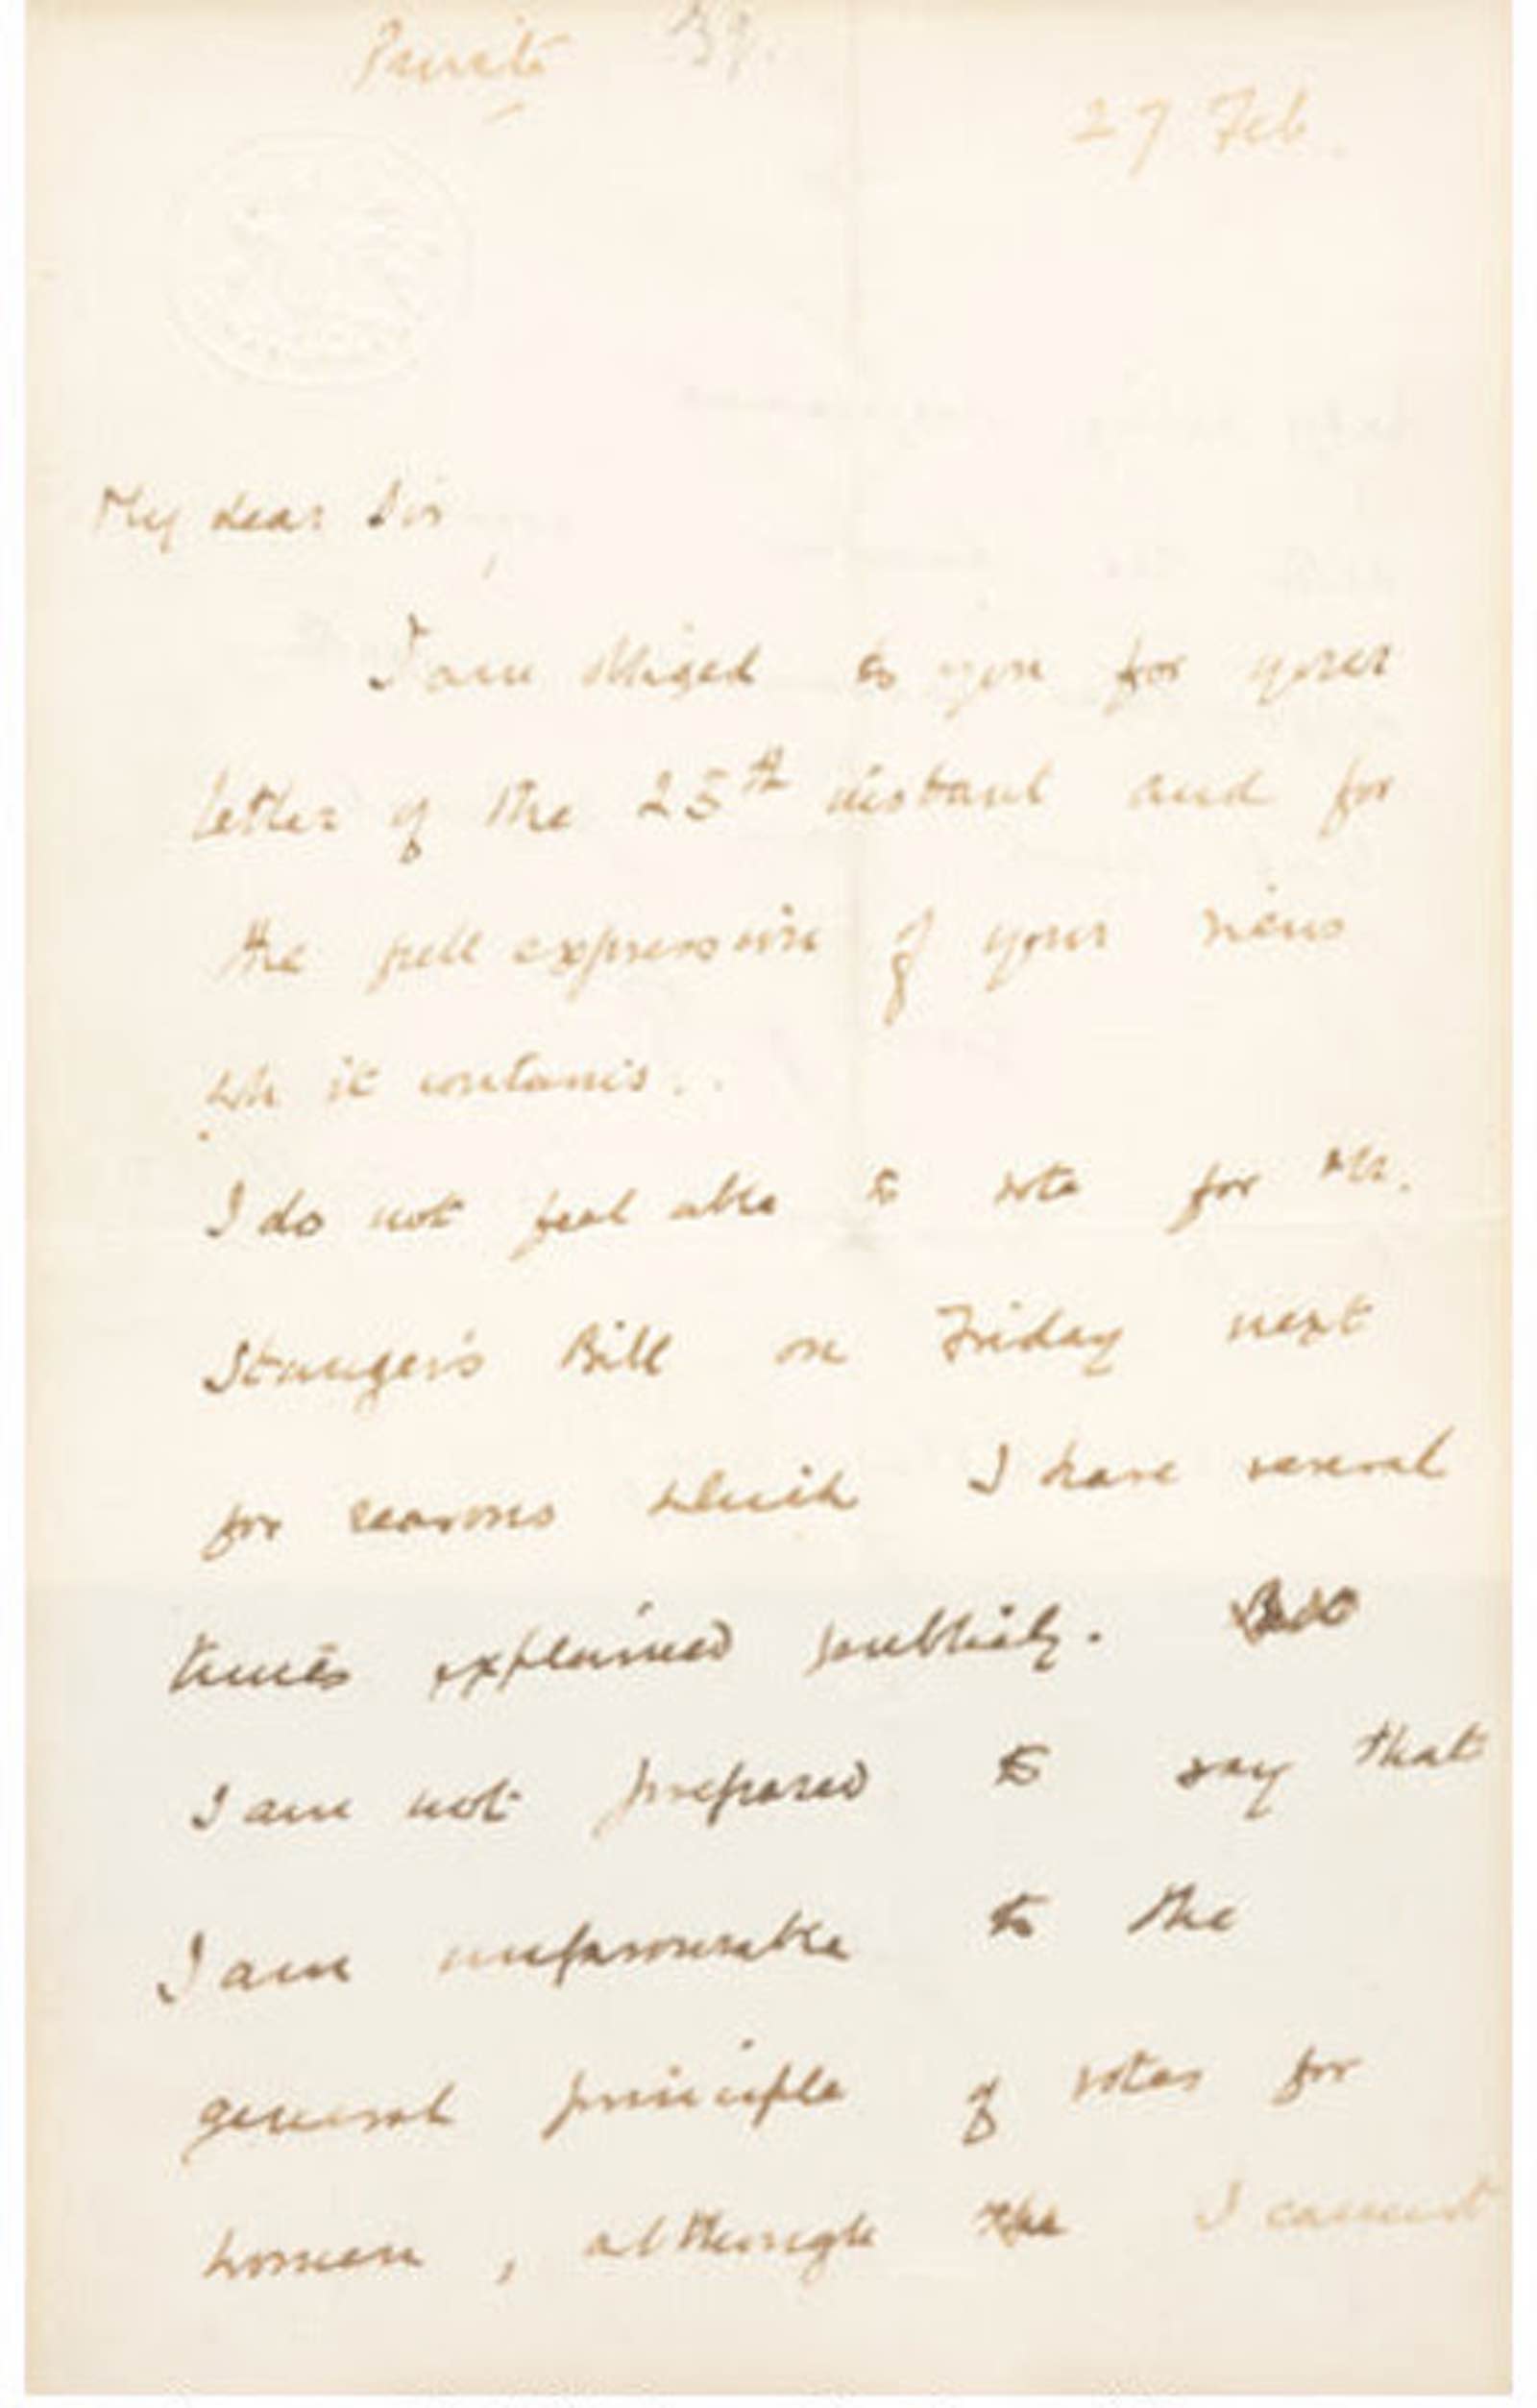 Private 39.
27 Feb.
My dear Sir,
I am obliged to you for your
letter of the 25th instant and for
the full expression of your views
wh it contains.
I do not feel able to vote for Mr.
Stanger's Bill on Friday next
for reasons which I have several
times explained publicly. But
I am not prepared to say that
I am unfavourable to the
general principle of votes for
women, although the I cannot